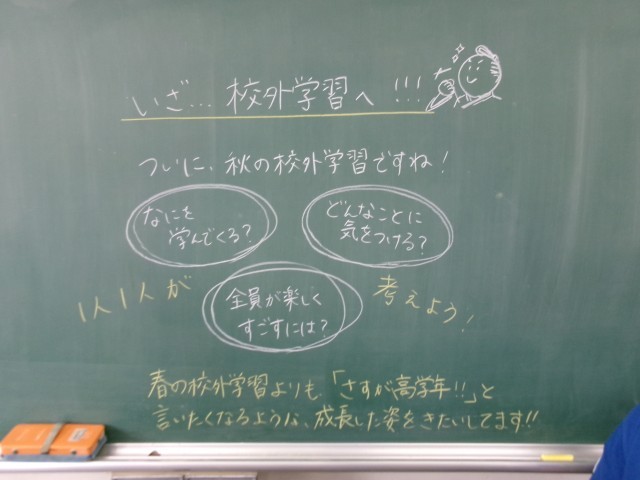 いざ… 校外学習へ!!!
ついに、秋の校外学習ですね!
なにを
学んでくる?
どんなことに
気をつける?
全員が楽しく
すごすには?
1人1人が 考えよう!
春の校外学習よりも、「さすが高学年!!」と
言いたくなるような、成長した姿をきたいしてます!!